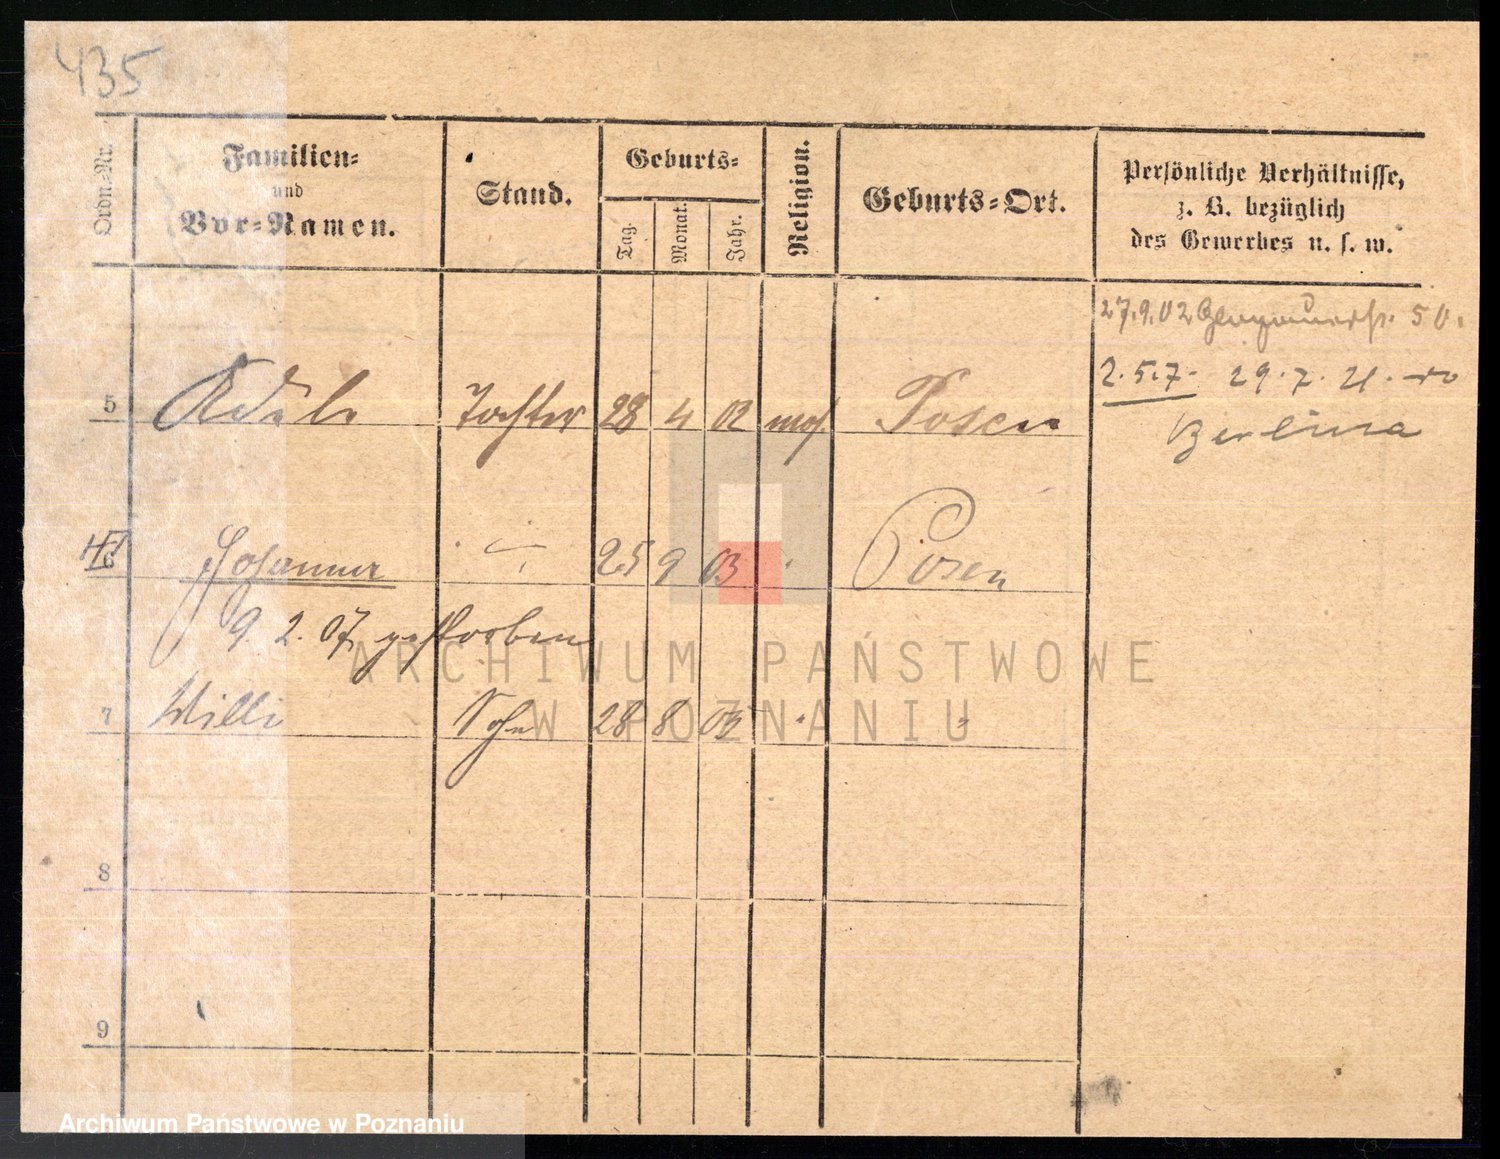 435
Ordn.-Nr.
Familien-
und
Vor-Namen.
Stand.
Geburts-
Tag.
Monat.
Jahr.
Religion.
Geburts-Ort.
Persönliche Verhältnisse,
z. B. bezüglich
des Gewerbes u. s. w.
27.9.02 Glogauerstr. 50.
2.5.7. 29.7.21.
5 Adele Tochter 28 4 02 mos. Posen
6 25 9 03 Posen
9. 2. 07. gestorben
7 Willi Sohn 28 8 05 "
8
9
ARCHIWUM PAŃSTWOWE
W POZNANIU
Archiwum Państwowe w Poznaniu